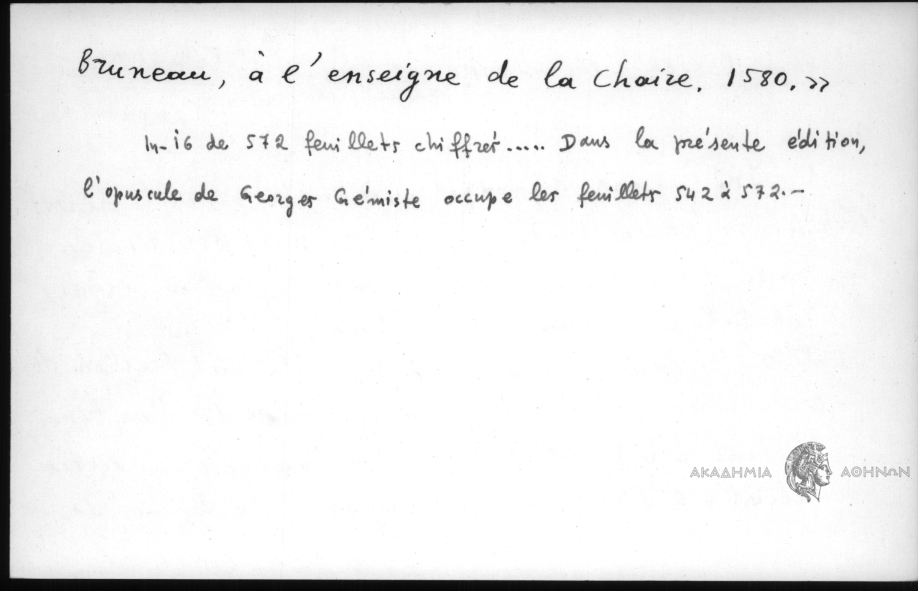 Bruneau, à l'enseigne de la Chaire. 1580.»
In-16 de 572 feuillets chiffrés..... Dans la présente édition,
l'opuscule de Georges Gémiste occupe les feuillets 542 à 572.–
ΑΚΑΔΗΜΙΑ ΑΘΗΝΩΝ